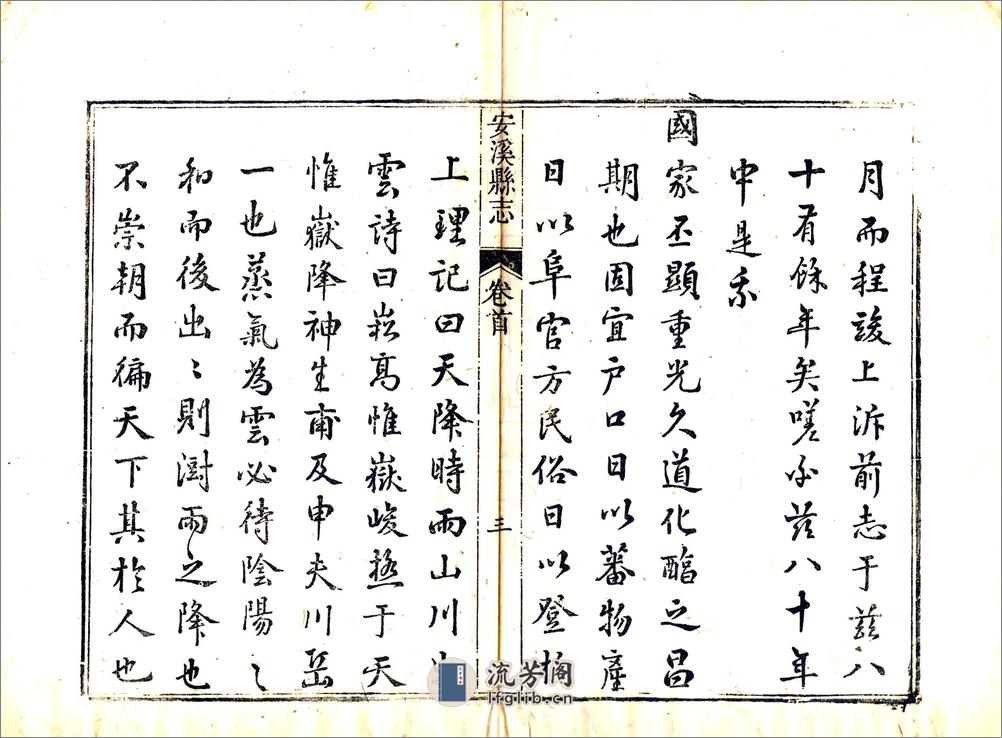 月而程竣上泝前志于茲八
十有餘年矣嗟乎茲八十年
中是我
國家丕顯重光久道化醕之昌
期也固宜户口日以蕃物產
日以阜官方民俗日以登於
安溪縣志
卷首
三
上理記曰天降時雨山川出
雲詩曰崧高惟嶽峻極于天
惟嶽降神生甫及申夫川岳
一也蒸氣為雲必待陰陽〻
和而後出〻則澍雨之降也
不崇朝而徧天下其於人也
流芳阁
lfglib.cn